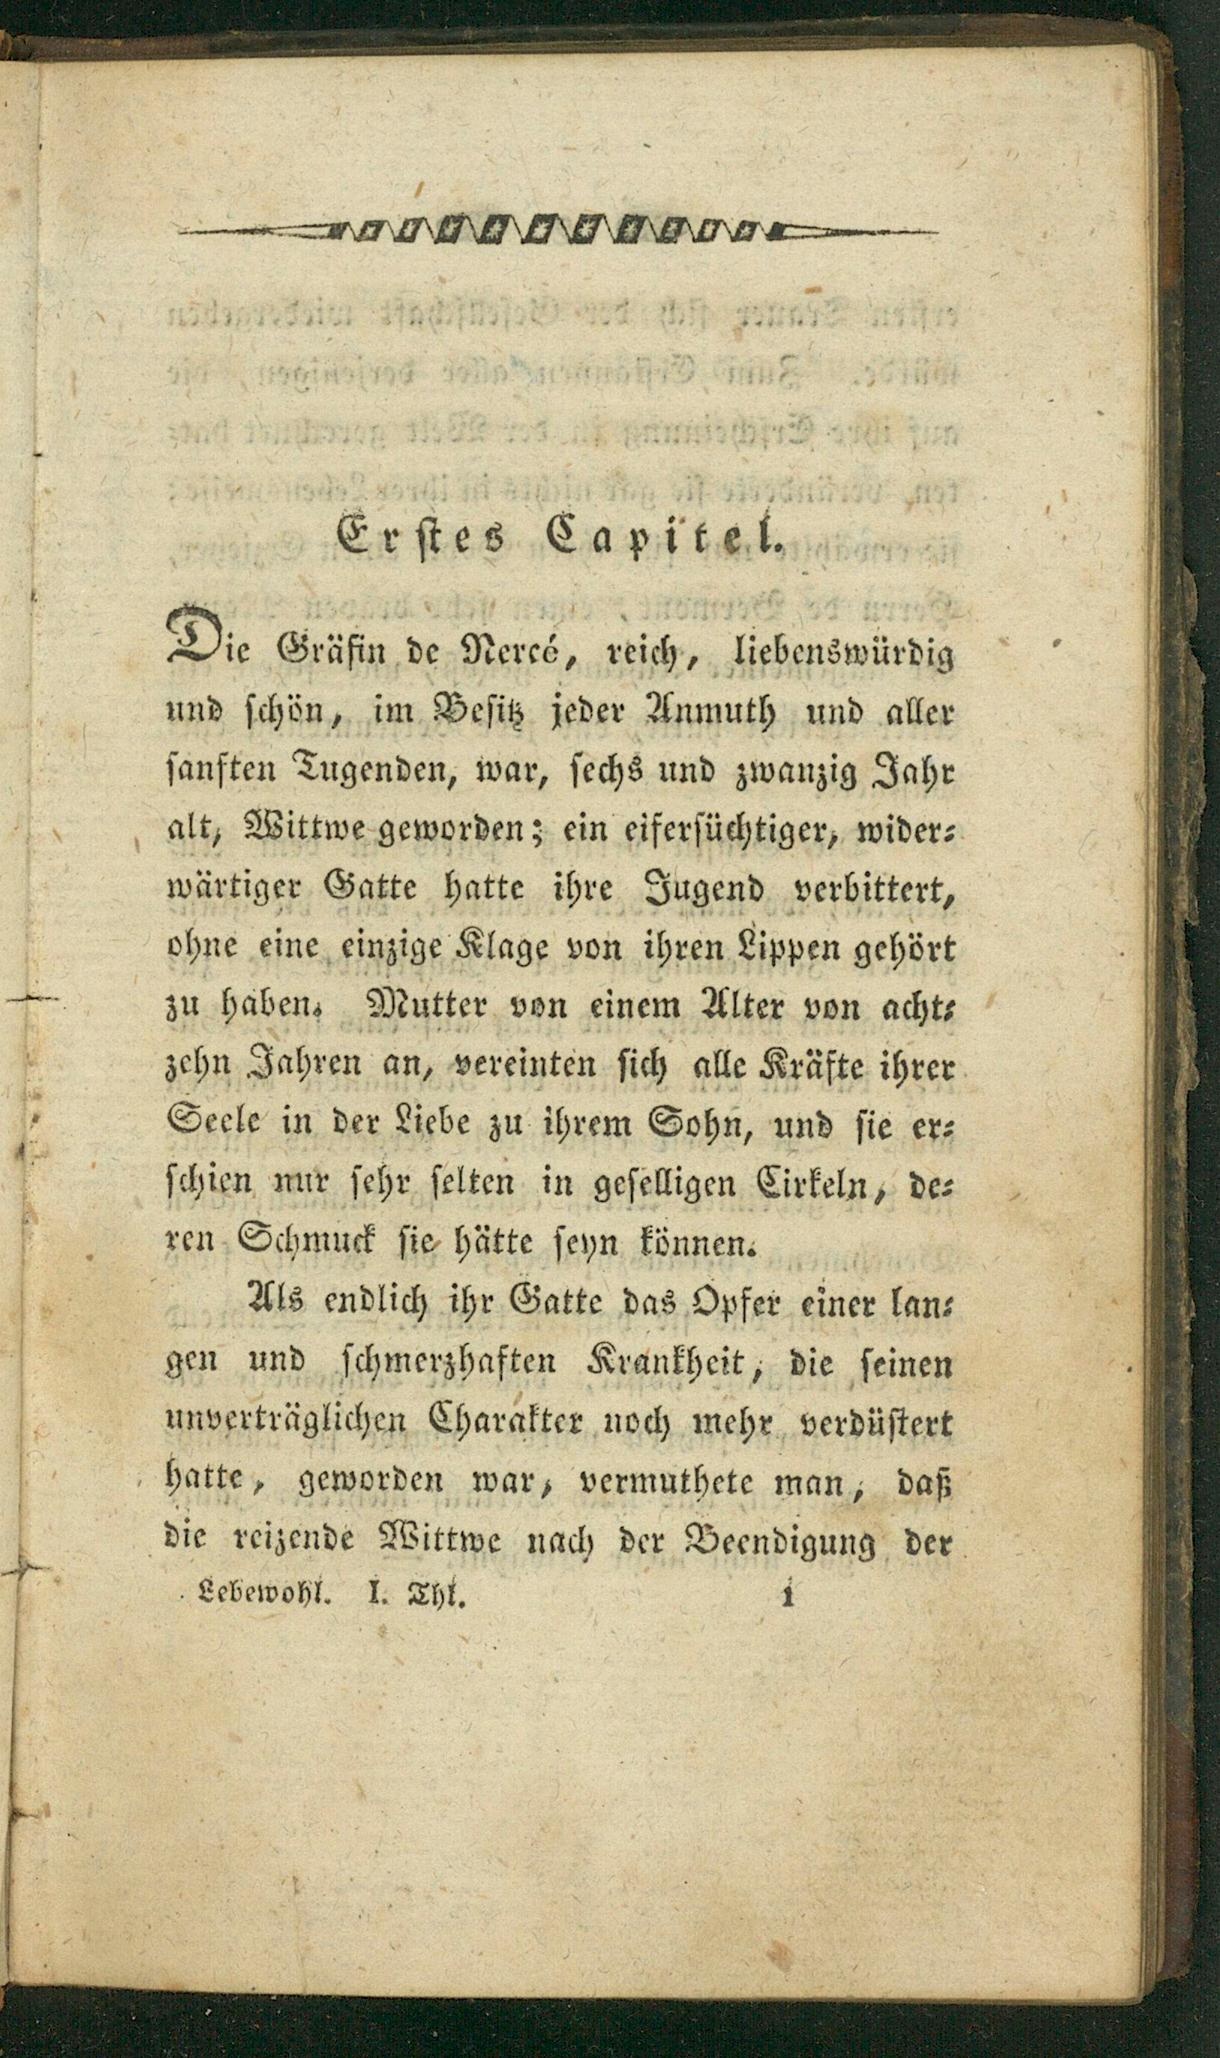 Erstes Capitel.
Die Gräfin de Nercé, reich, liebenswürdig
und schön, im Besitz jeder Anmuth und aller
sanften Tugenden, war, sechs und zwanzig Jahr
alt, Wittwe geworden; ein eifersüchtiger, wider-
wärtiger Gatte hatte ihre Jugend verbittert,
ohne eine einzige Klage von ihren Lippen gehört
zu haben. Mutter von einem Alter von acht-
zehn Jahren an, vereinten sich alle Kräfte ihrer
Seele in der Liebe zu ihrem Sohn, und sie er-
schien nur sehr selten in geselligen Cirkeln, de-
ren Schmuck sie hätte seyn können.
Als endlich ihr Gatte das Opfer einer lan-
gen und schmerzhaften Krankheit, die seinen
unverträglichen Charakter noch mehr verdüstert
hatte, geworden war, vermuthete man, daß
die reizende Wittwe nach der Beendigung der
Lebewohl. I. Thl. 1